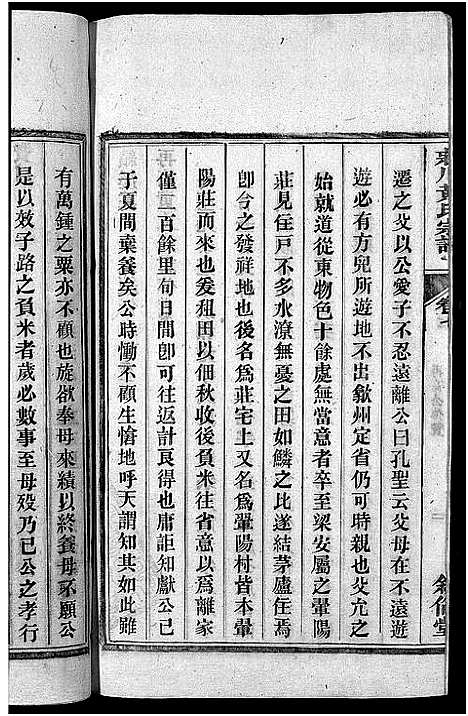 遷之父以公愛子不忍遠離公曰孔聖云父母在不遠遊
遊必有方兒所遊地不出歙州定省仍可時親也父允之
始就道從東物色十餘處無當意者卒至梁安屬之暈陽
莊見住戸不多水潦無憂之田如鱗之比遂結茅廬住焉
卽今之發祥地也後名爲莊宅上又名爲暈陽村皆本暈
陽莊而來也爰租田以佃秋收後負米往省意以爲離家
僅二百餘里旬日間卽可往返計良得也庸詎知獻公已
于夏間棄養矣公時慟不顧生愴地呼天謂知其如此雖
有萬鍾之粟亦不顧也旋欲奉母來績以終養母不願公
是以效子路之負米者歲必數事至母歿乃已公之孝行
氏宗譜
卷七
堂